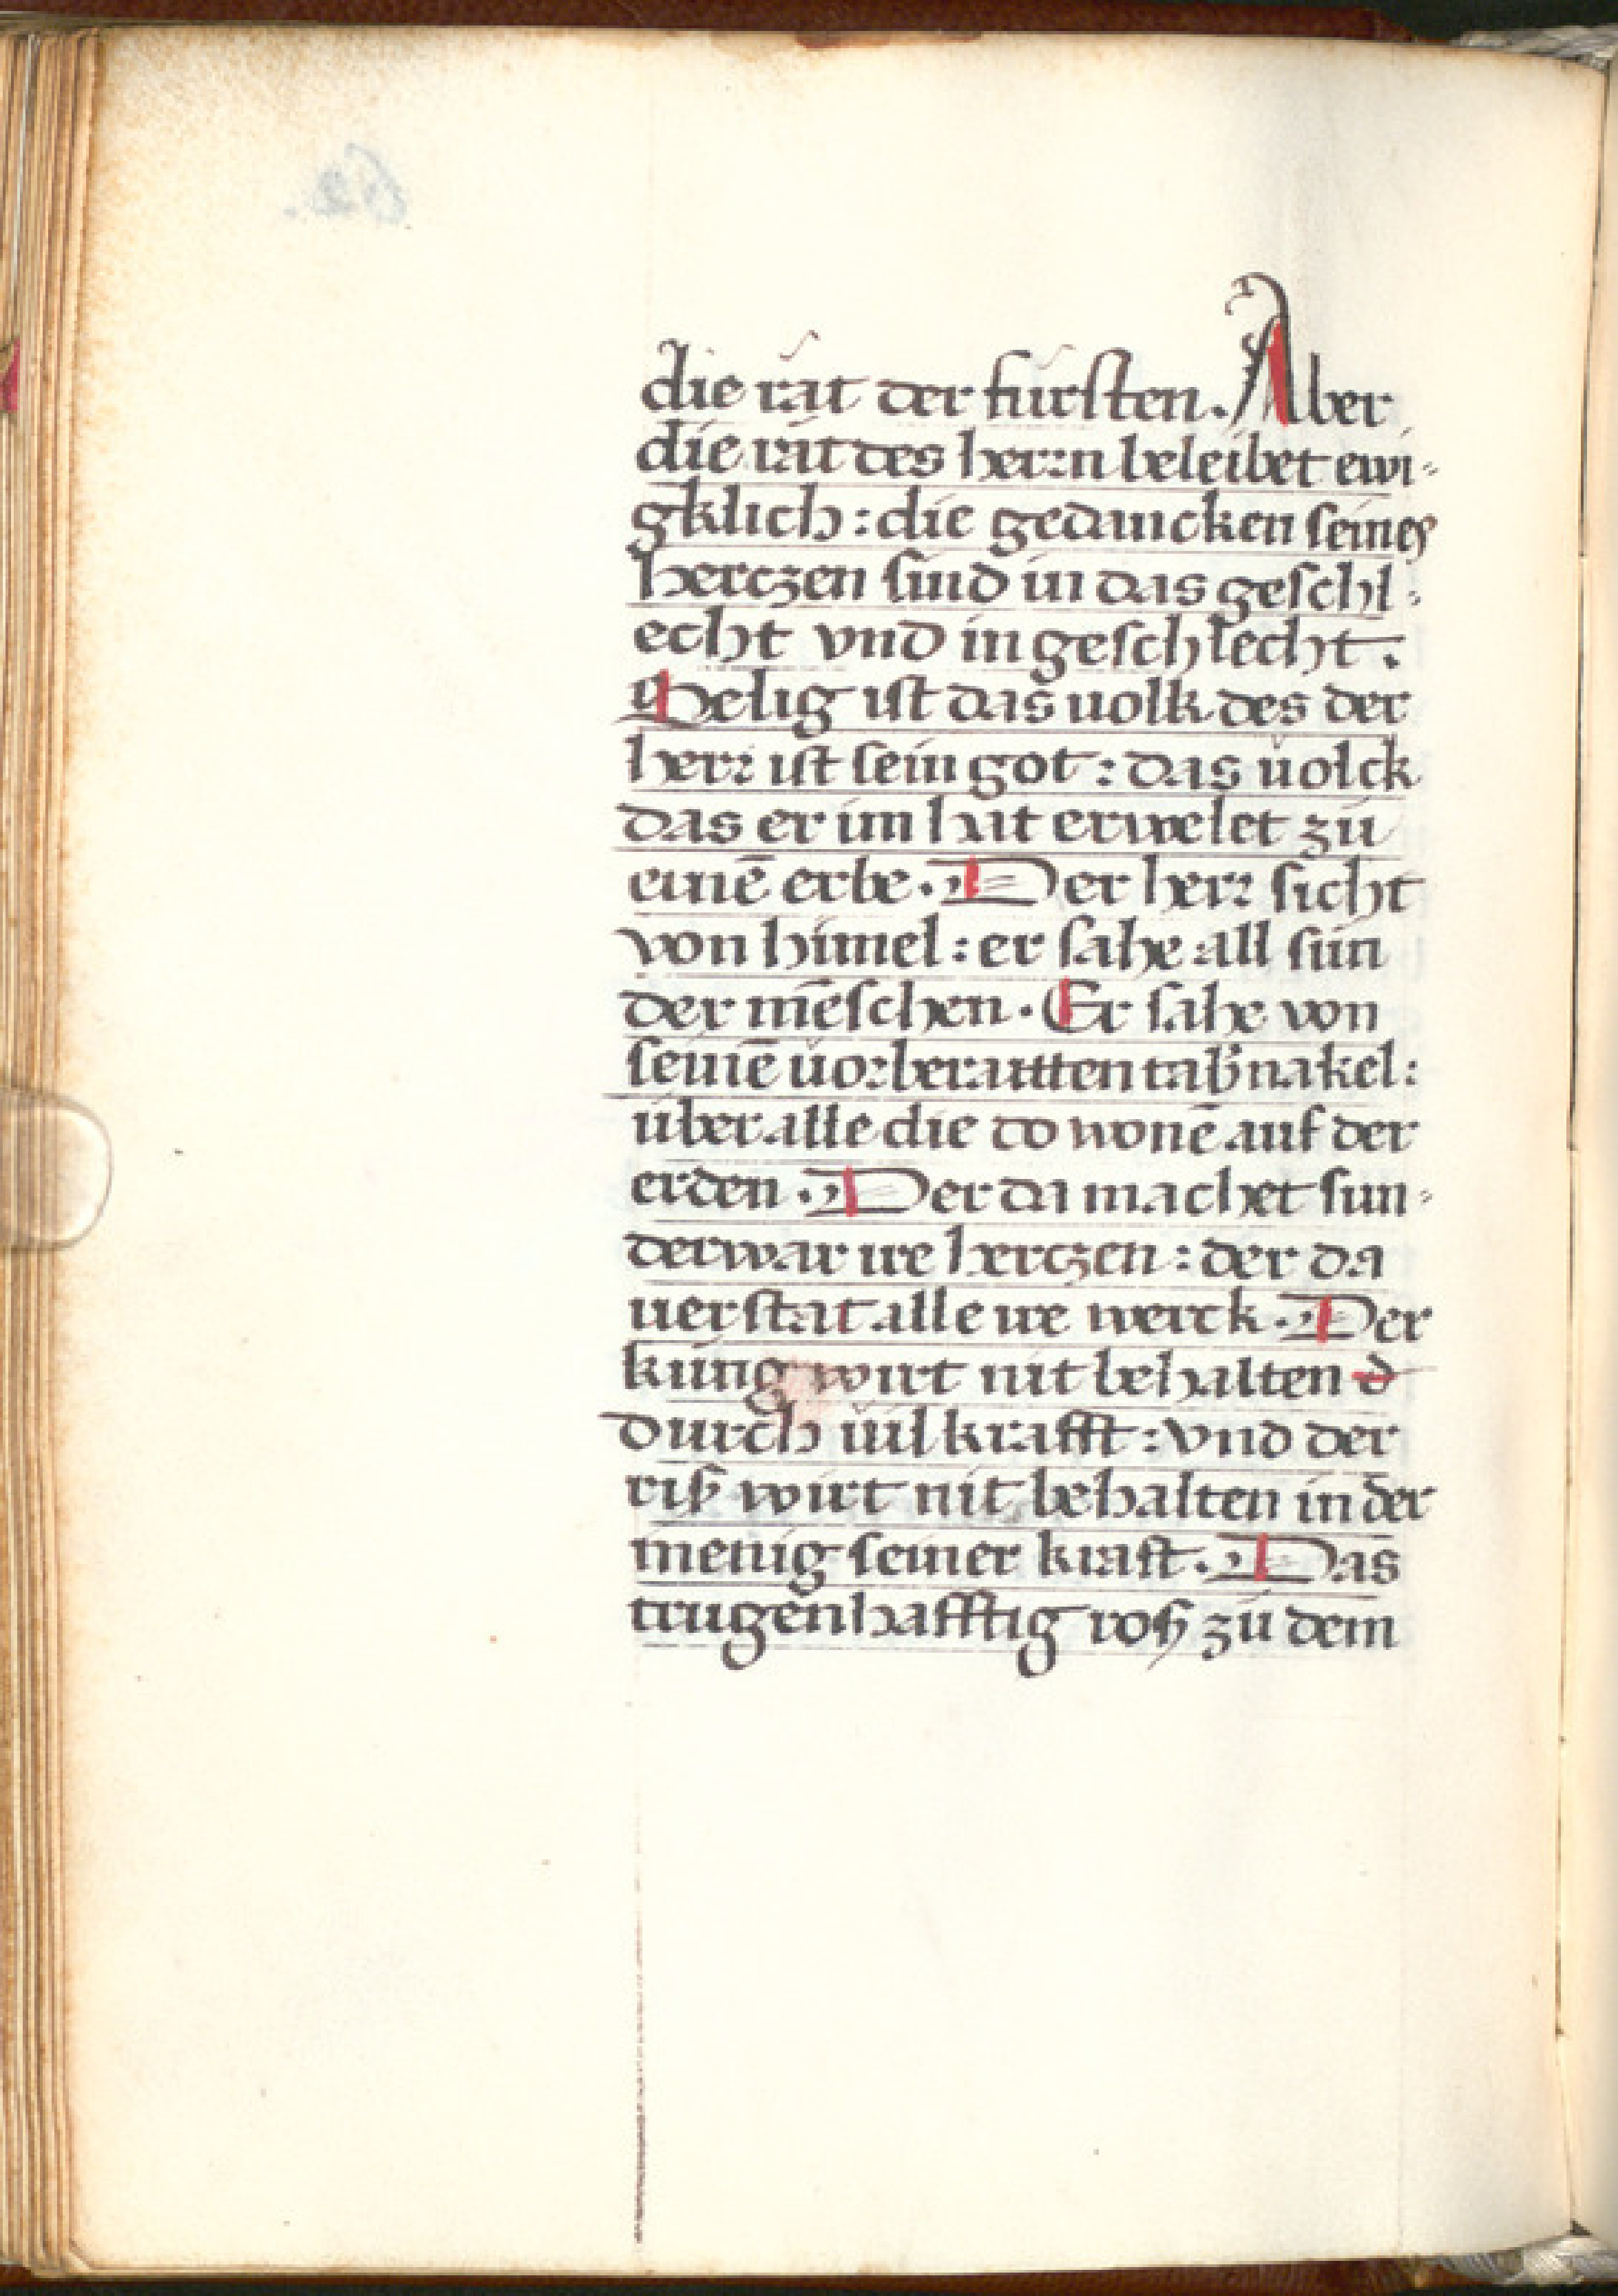 die rät der fürsten. Aber
die rät des herrn beleibet ewi-
gklich: die gedancken seines
herczen sind in das geschl-
echt vnd in geschlecht.
Selig ist das uolk des der
herr ist sein got: das uolck
das er im hat erwelet zu
einē erbe. Der herr sicht
von himel: er sahe all sün
der mēschen. Er sahe von
seinē uorberaitten tab̉nakel:
über alle die do wonē auf der
erden. Der da machet sun-
derwar ire herczen: der da
uerstat alle ire werck. Der
küng wirt nit behalten d
durch uil krafft: vnd der
riß wirt nit behalten in der
menig seiner kraft. Das
trugenhafftig roß zu dem